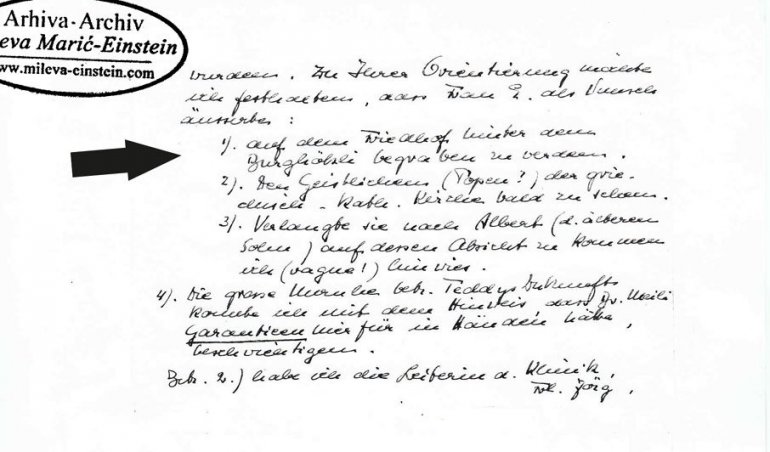 Arhiva-Archiv
eva Marić-Einstein
ww.mileva-einstein.com
wurden. Zu Ihrer Orientierung möchte
ich festhalten, dass Frau E. als Wunsch
äusserte:
1). auf dem Friedhof hinter dem
Burghölzli begraben zu werden.
2). Den Geistlichen (Popen?) der grie-
chisch-kath. Kirche bald zu sehen.
3). Verlangte sie nach Albert (d. älteren
Sohn) auf dessen Absicht zu kommen
ich (vague!) hinwies.
4). Die grosse Unruhe betr. Teddys Zukunft
konnte ich mit dem Hinweis dass Dr. Meili
Garantieen hierfür in Händen hätte,
beschwichtigen.
Betr. 2.) habe ich die Leiterin d. Klinik,
Frl. Jörg,